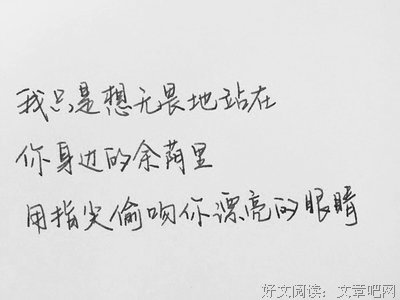 我只是想无畏地站在
你身边的余荫里
用指尖偷吻你漂亮的眼睛
好文阅读：文章吧网